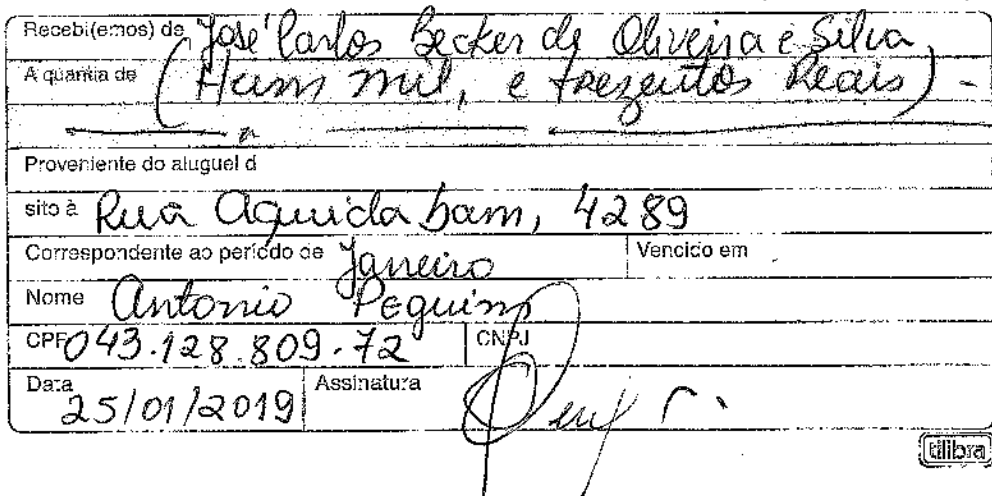 Recebi(emos) de José Carlos Becker de Oliveira e Silva
A quantia de (Hum mil, e trezentos Reais) -
Proveniente do aluguel d
sito à Rua Aquidabam, 4289
Correspondente ao período de Janeiro Vencido em
Nome Antonio Pequim
CPF 043.128.809-72 CNPJ
Data 25/01/2019 Assinatura
tilibra